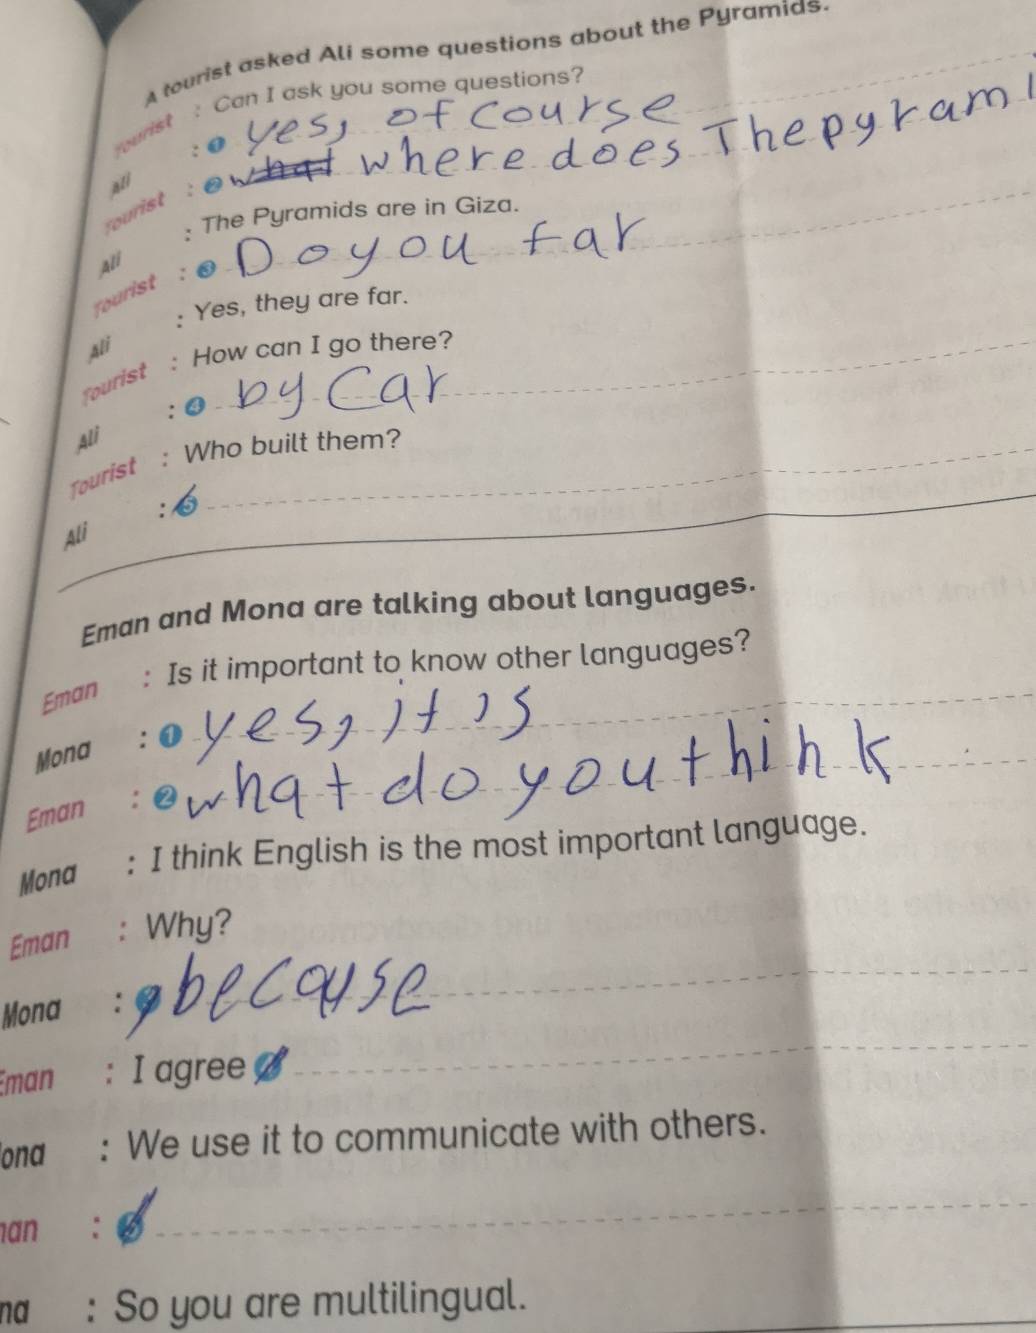 A tourist asked Ali some questions about the Pyramids.
Tourist : Can I ask you some questions?
Ali : 1 yes, of course
Tourist : 2 what where does The pyram
Ali : The Pyramids are in Giza.
Tourist : 3 Do you far
Ali : Yes, they are far.
Tourist : How can I go there?
Ali : 4 by Car
Tourist : Who built them?
Ali : 5
Eman and Mona are talking about languages.
Eman : Is it important to know other languages?
Mona : 1 yes, it is
Eman : 2 what do you think
Mona : I think English is the most important language.
Eman : Why?
Mona : because
Eman : I agree
ona : We use it to communicate with others.
an :
na : So you are multilingual.